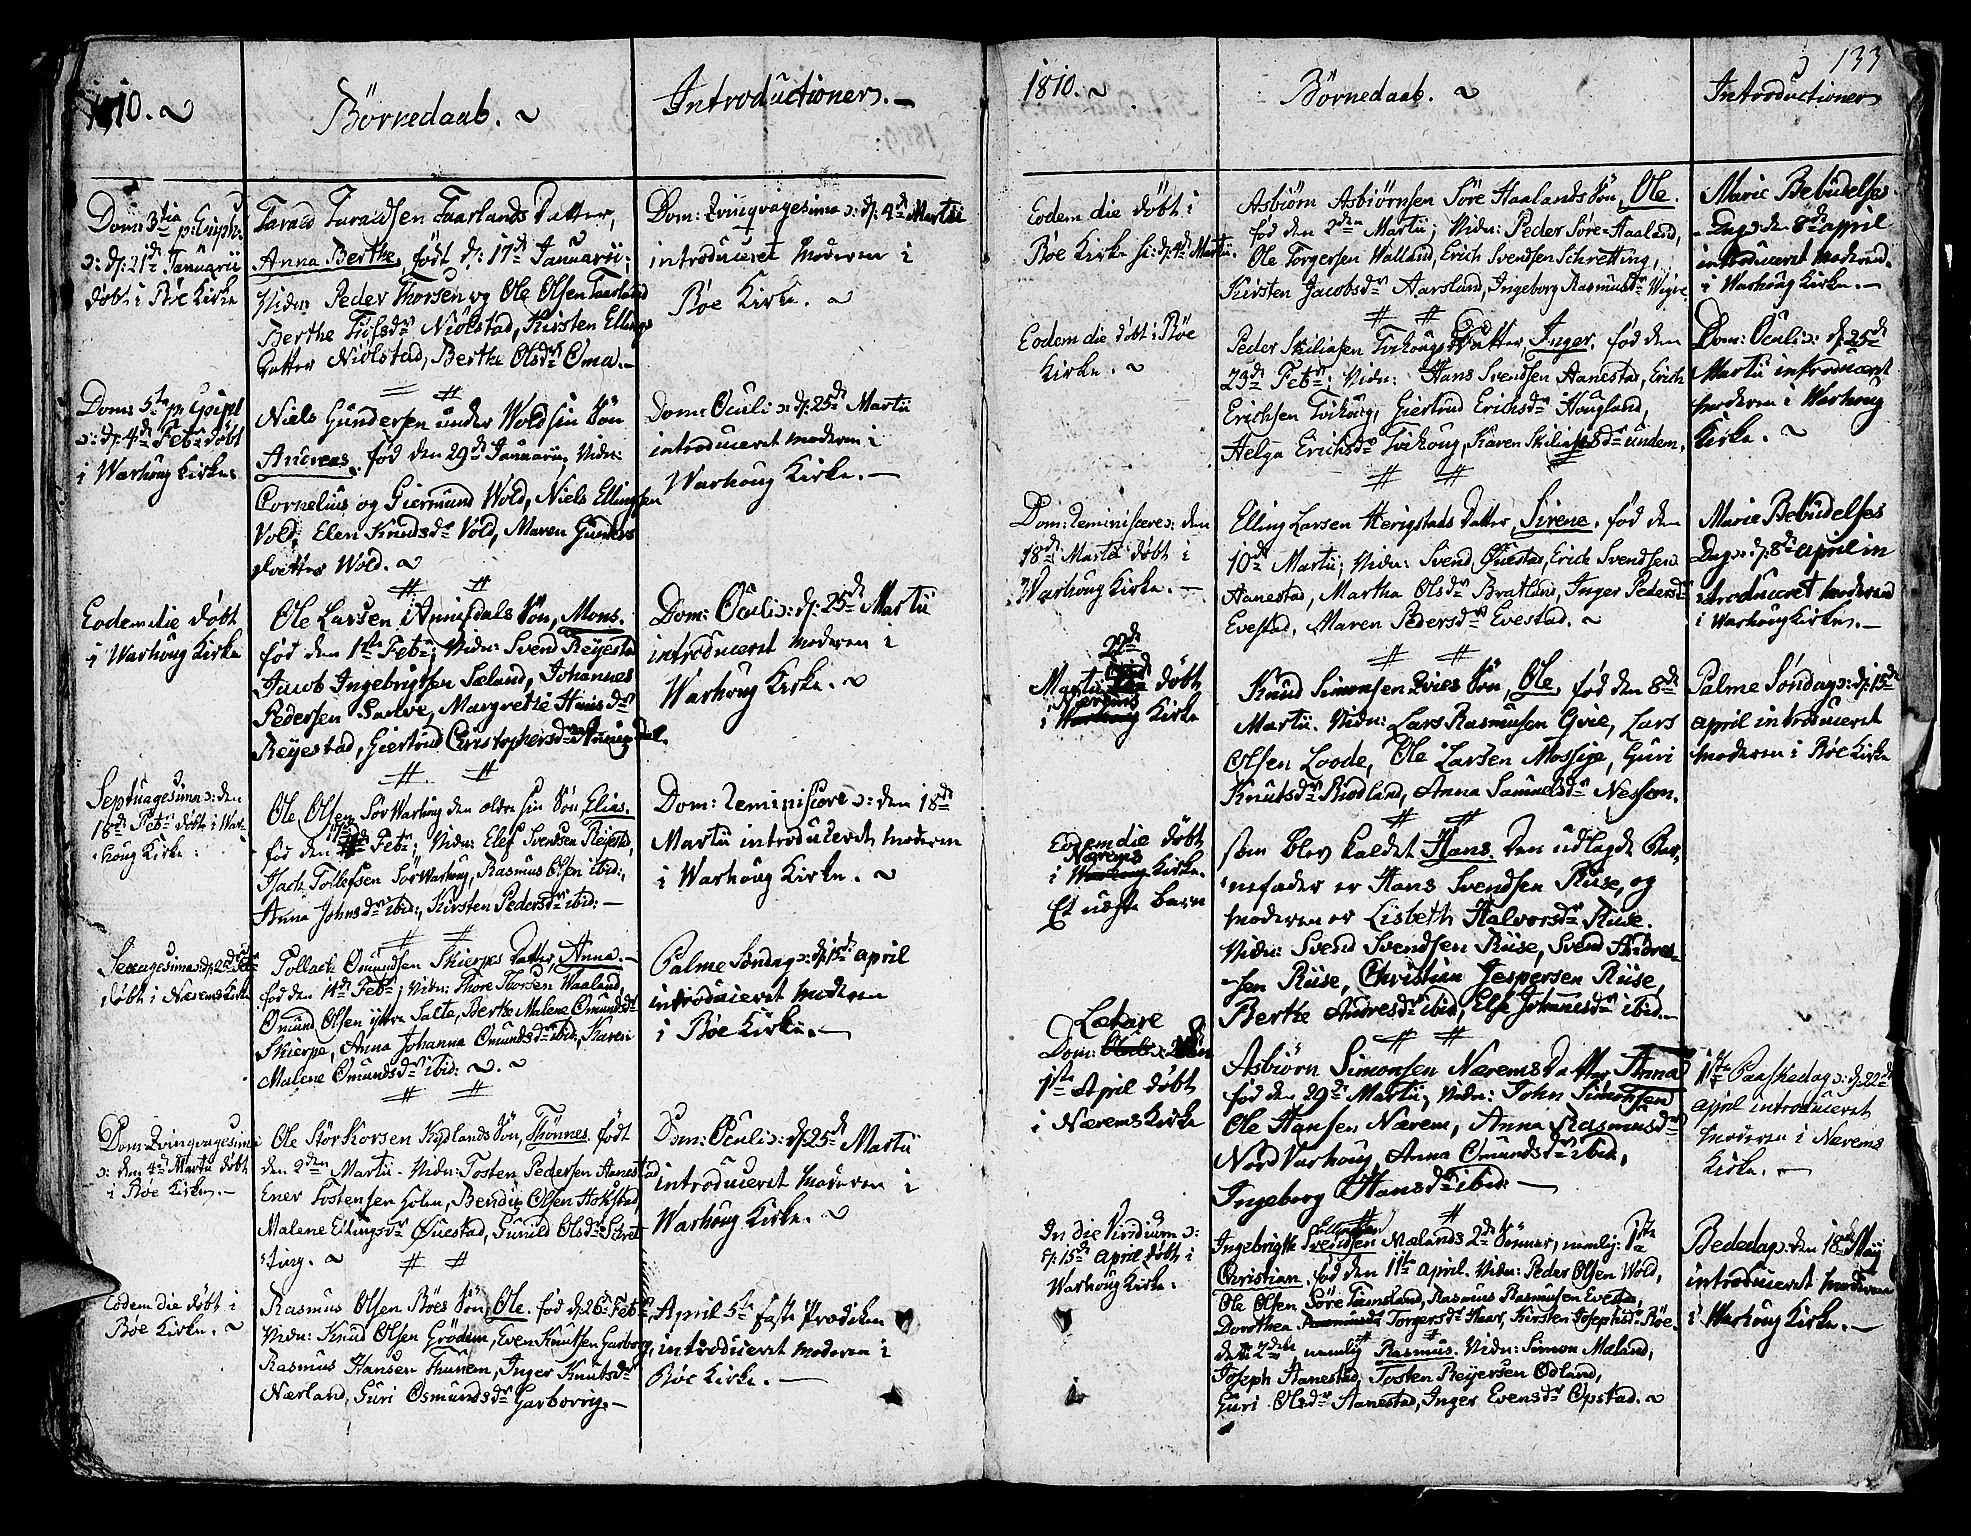 1810.
Börnedaab.
Introductioner.
Dom: 3tia p: Epiph:
ɔ: d: 21de Januarii
døbt i Bøe Kirke
Tarald Taraldsen Taarlands Datter,
Anna Berthe, født d: 17de Januarii;
Vidn: Peder Thorsen og Ole Olsen Taarland
Berthe Trülsdr Niölstad, Kirsten Ellings
datter Niölstad, Berthe Olsdr Oma.
Dom: Qvinqvagesima ɔ: d: 4de Martii
introduceret Moderen i
Bøe Kirke.
Dom: 5ta p: Epiph:
ɔ: d: 4de Febr: døbt
i Warhoug Kirke.
Niels Gundersen under Wold sin Søn
Andreas, fød den 29de Januarii, Vidn:
Cornelius og Giermund Wold, Niels Ellingsen
Vold, Elen Knudsdr Vold, Maren Gunders
datter Wold.
Dom: Oculi ɔ: d: 25de Martii
introduceret Moderen i
Warhoug Kirke.
Eodem die døbt
i Warhoug Kirke
Ole Larsen Aniksdals Søn, Mons.
fød den 1ste Febr; Vidn: Svend Reyestad
Jacob Ingebrigtsen Sæland, Johannes
Pedersen Salve, Margrethe Hansdr
Reyestad, Giertrud Christophersdr Aniksdal.
Dom: Oculi ɔ: d: 25de Martii
introduceret Moderen i
Warhoug Kirke.
Septuagesima ɔ: den
18de Febr døbt i War-
houg Kirke:
Ole Olsen Sør Warhoug den ældre sin Søn, Elias.
fød den Febr; Vidn: Elef Svendsen Reyestad,
Isach Tollefsen Sør Warhoug, Rasmus Olsen ibid:,
Anna Johnsdr ibid:, Kirsten Pedersdr ibid:
Dom: Reminiscere ɔ: den 18de
Martii introduceret Moderen
i Warhoug Kirke.
Sexagesima ɔ: d: 25de Febr
døbt i Nærems Kirke
Tollach Omundsen Skierpes Datter, Anna.
fød den 14de Febr; Vidn: Thore Thorsen Waaland,
Omund Olsen yttre Salte, Berthe Malene Omundsdr
Skierpe, Anna Johanna Omundsdr ibid:, Karen
Malene Omundsdr ibid:
Palme Søndag ɔ: d: 15de April
introduceret Moderen
i Bøe Kirke.
Dom: Qvinqvagesima
ɔ: den 4de Martii døbt
i Bøe Kirke.
Ole Störkorsen Kydlands Søn, Thönnes. født
den 2den Martii. Vidn: Tosten Pedersen Hanestad
Ener Tostensen Holm, Bendix Olsen Askstad,
Malene Ellingsdr Øuestad, Gunild Olsdr Schret
ting.
Dom: Oculi ɔ: d: 25de Martii
introduceret Moderen i
Warhoug Kirke.
Eodem die døbt i
Bøe Kirke.
Rasmus Olsen Böes Søn, Ole. fød d: 26de Febr
Vidn: Knud Olsen Grödem, Even Knutsen Garborg,
Rasmus Hansen Thunem, Inger Knutsdr
Nærland, Guri Osmundsdr Garborrig.
April 5te Faste Prædiken
introduceret Moderen i
Bøe Kirke.
133
1810.
Börnedaab.
Introductioner
Eodem die döbt i
Bøe Kirke ɔ: d: 4de Martii.
Asbiörn Asbiörnsen Söre Haalands Søn, Ole.
fød den 2den Martii; Vidn: Peder Söre-Haaland,
Ole Torgersen Walland, Erich Svendsen Schretting,
Kirsten Jacobsdr Aarsland, Ingeborg Rasmusdr Wigre.
Mariæ Bebudelses-
Dag ɔ: den 8de April
introduceret Moderen
i Warhoug Kirke.
Eodem die döbt i Bøe
Kirke.
Peder Skiliasen Tvihougs Datter, Inger. fød den
23de Febr; Vidn: Hans Svendsen Hanestad, Erich
Erichsen Tvihoug, Giertrud Erichsdr Hougland,
Helga Erichsdr Tvihoug, Karen Skiliasdr undem.
Dom: Oculi ɔ: d: 25de
Martii introduceret
Moderen i Warhoug
Kirke.
Dom: Reminiscere ɔ: den
18de Martii döbt i
Warhoug Kirke.
Elling Larsen Herigstads Datter, Sirene. fød den
10de Martii; Vidn: Svend Øuestad, Erich Svendsen
Hanestad, Martha Olsdr Bratland, Inger Pedersdr
Evestad, Maren Pedersdr Evestad.
Mariæ Bebudelses
Dag ɔ: d: 8de April in
troduceret Moderen
i Warhoug Kirke.
22de
Martii døbt
Nærems
i Warhoug Kirke
Knud Simonsen Qvies Søn, Ole, fød den 8de
Martii. Vidn: Lars Rasmusen Qvie, Lars
Olsen Loode, Ole Larsen Mossige, Guri
Knutsdr Riodland, Anna Samuelsdr Nessem.
Palme Søndag ɔ: d: 15de
April introduceret
Moderen i Bøe Kirke
Eodem die döbt
Nærems
i Warhoug Kirke.
Et uægte barn
som blev kaldet Hans. Den udlagde Bar,
nefader er Hans Svendsen Riise, og
Moderen er Lisbeth Halvorsdr Riise.
Vidn: Svend Svendsen Riise, Svend Andrea-
sen Riise, Christian Jespersen Riise,
Berthe Andresdr ibid:, Else Johannisdr ibid.
Lætare
Dom: ɔ: den
1ste April döbt
i Nærems Kirke
Asbiörn Simonsen Nærems Datter Anna
fød den 29de Martii, Vidn: John Simonsen
Ole Hansen Nærem, Anna Rasmusdr
Nord Varhoug Anna Omundsdr ibid.
Ingeborg Hansdr ibid:
1ste Paaskedag ɔ: d: 22de
April introduceret
Moderen i Nærems
Kirke.
In die Viridium ɔ:
d: 15de April döbt i
Warhoug Kirke.
Ellingsen
Ingebrigth Svendsen Mælands 2de Sønner, nemlig: 1ste
Christian. fød den 11te April. Vidn: Peder Olsen Wold,
Ole Olsen Söre Taimsland, Rasmus Rasmusen Evestad,
Dorothea Torgersdr Haar, Kirsten Josephsdr Bøe.
den 2den nemlig Rasmus. Vidn: Simon Mæland,
Joseph Hanestad, Tosten Reyersen Ödland,
Guri Olsdr Hanestad, Inger Evensdr Opstad.
Bededag ɔ: den 18de Maij
introduceret Moderen
i Warhoug Kirke.